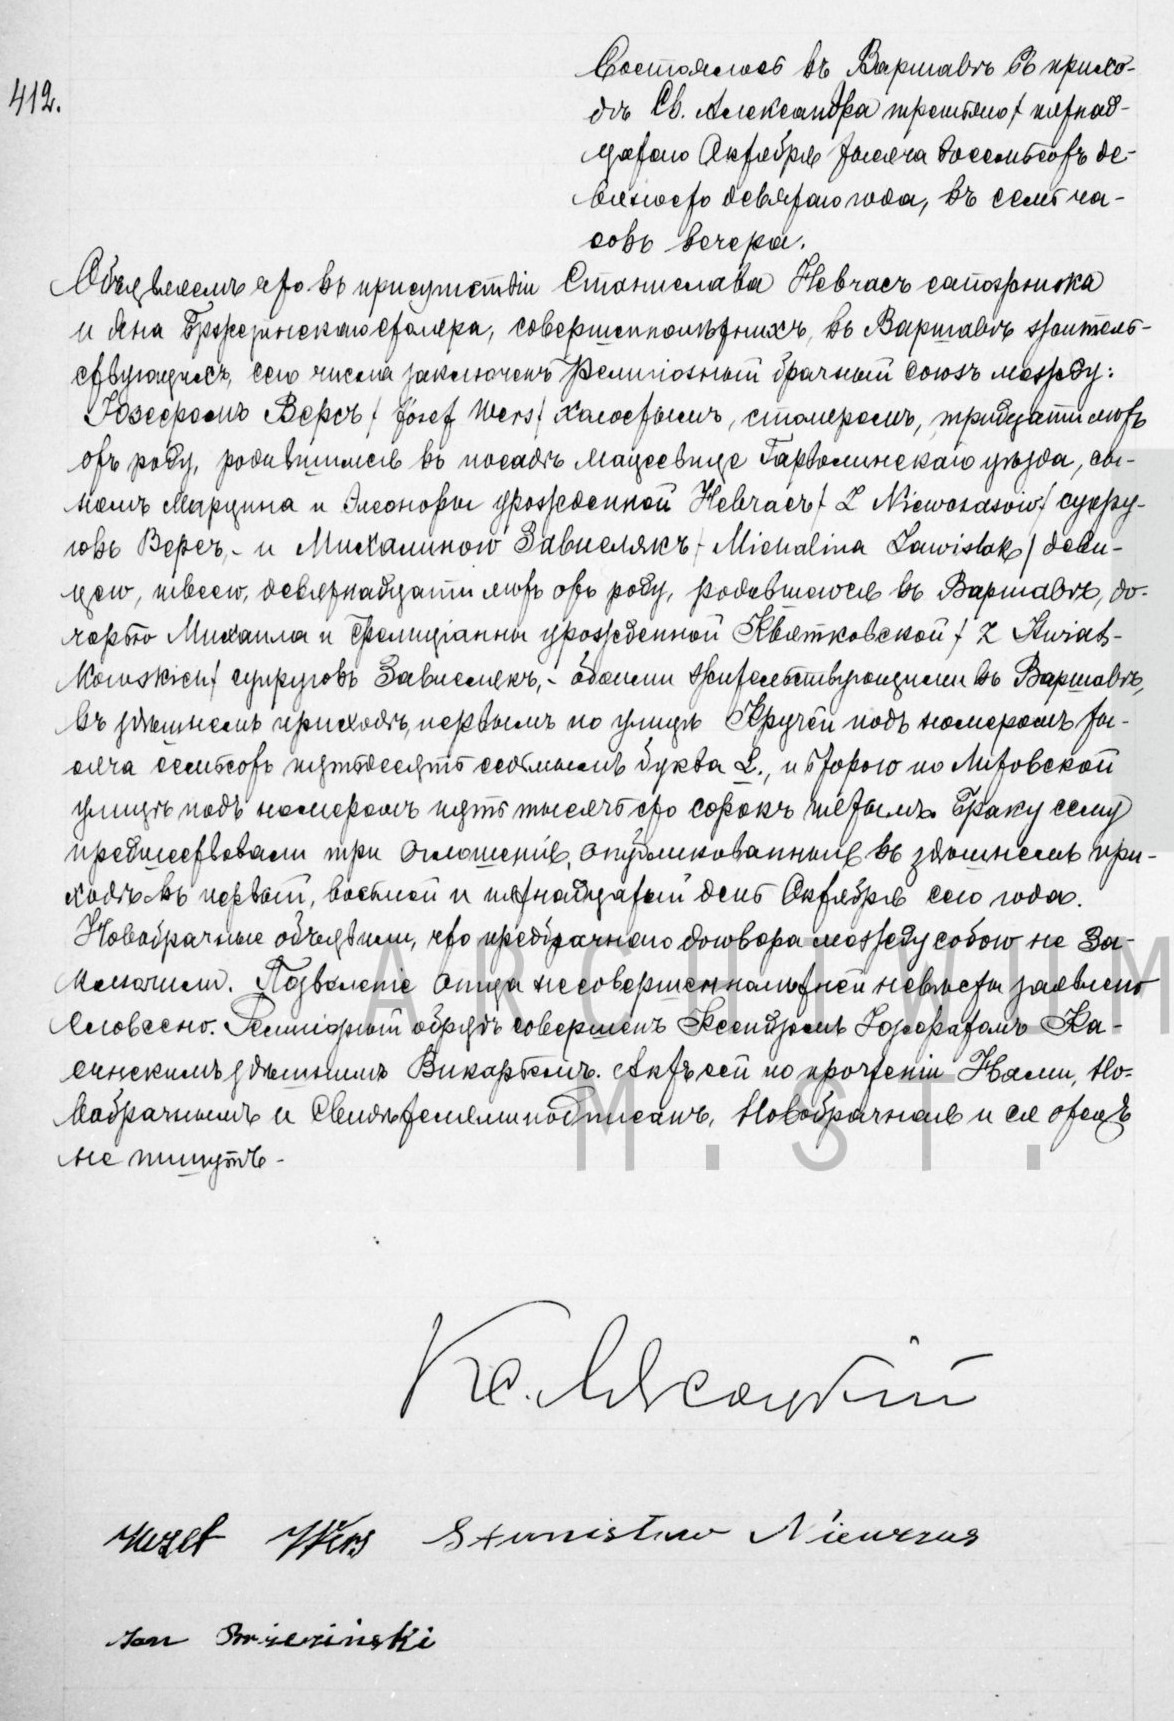 412.
Состоялось въ Варшавѣ въ прихо-
дѣ Св. Александра третьяго / пятнад-
цатаго Октября тысяча восемьсотъ де-
вяносто девятаго года, въ семь ча-
совъ вечера.
Объявляемъ что въ присутствіи Станислава Невчасъ сапожника
и Яна Бржезинскаго столяра, совершеннолѣтнихъ, въ Варшавѣ житель-
ствующихъ, сего числа заключенъ Религіозный брачный союзъ между:
Юзефомъ Версъ / Józef Wers / холостымъ, столяромъ, тридцати лѣтъ
отъ роду, родившимся въ посадѣ Мацеевице Гарволинскаго уѣзда, сы-
номъ Марцина и Элеоноры урожденной Невчасъ / Z Niewczasów / супру-
говъ Версъ, - и Михалиною Завислякъ / Michalina Zawislak / деви-
цею, швеею, девятнадцати лѣтъ отъ роду, родившеюся въ Варшавѣ, до-
черью Михаила и Фелиціанны урожденной Квятковской / Z Kwiat-
kowskich / супруговъ Завислякъ, - обоими жительствующими въ Варшавѣ,
въ здѣшнемъ приходѣ, первымъ по улицѣ Кручей подъ номеромъ ты-
сяча семьсотъ пятьдесятъ седьмымъ буква L., и второю по Литовской
улицѣ подъ номеромъ пять тысячъ сто сорокъ пятымъ. Браку сему
предшествовали три оглашенія, опубликованныя въ здѣшнемъ при-
ходѣ въ первый, восьмой и пятнадцатый день Октября сего года.
Новобрачные объявили, что предбрачнаго договора между собою не за-
ключили. Позволеніе отца несовершеннолѣтней невѣсты заявлено
словесно. Религіозный обрядъ совершенъ Ксендзомъ Юзефатомъ
здѣшнимъ Викаріемъ. Актъ сей по прочтеніи Нами, Но-
вобрачнымъ и Свидѣтелями подписанъ, Новобрачная и ея отецъ
не пишутъ -
Кс.
Józef Wers Stanisław Niewczas
Jan Brzezinski
ARCHIWUM
M. ST.